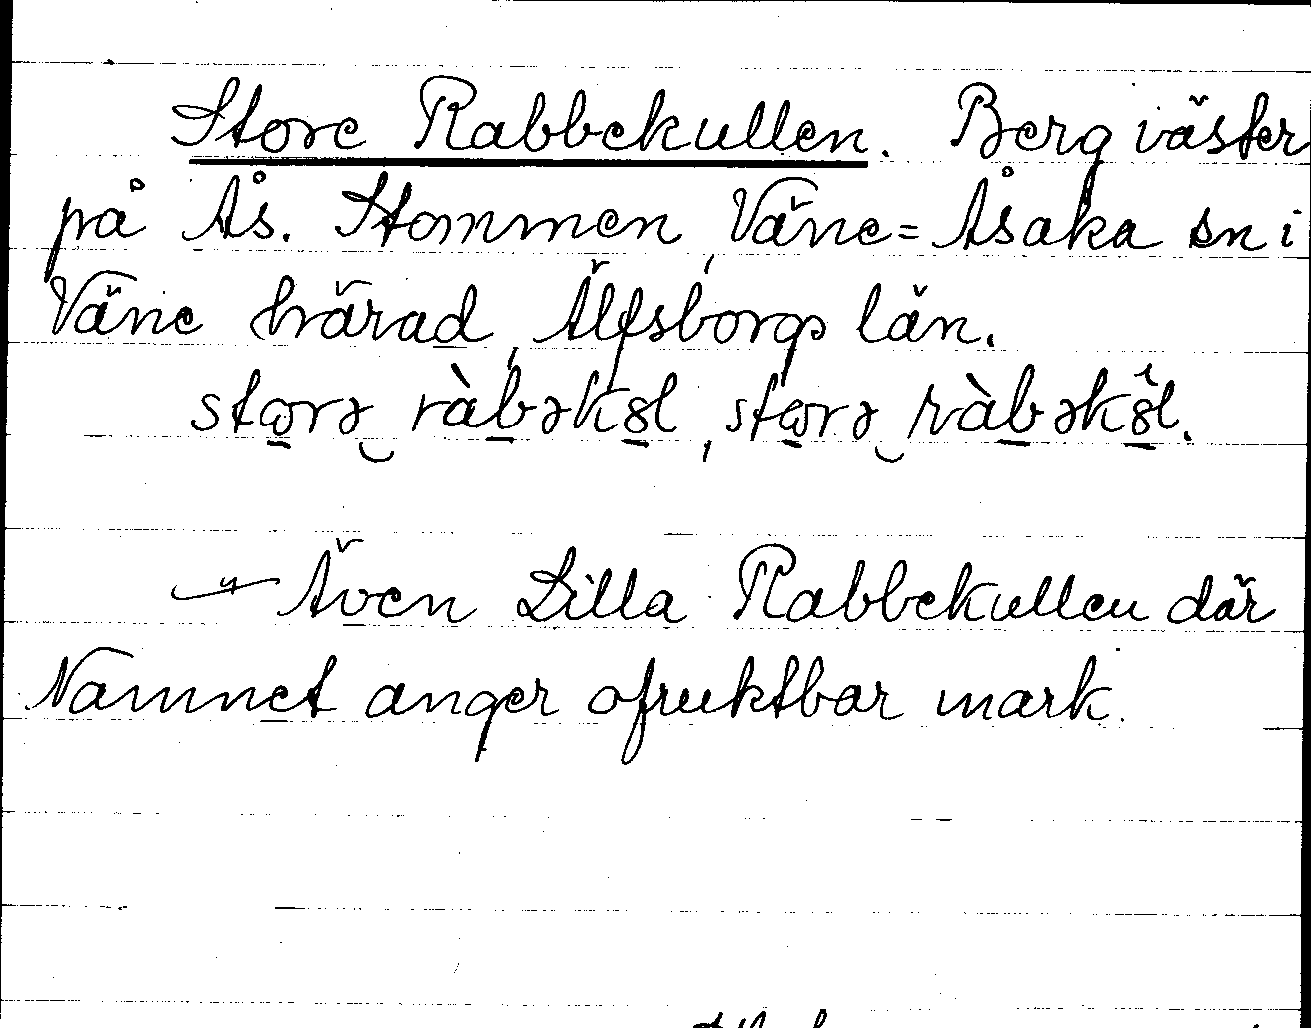 Store Rabbekullen. Berg väster
på Ås. Stommen, Väne=Åsaka sn i
Väne härad, Älfsborgs län.
stɷrə ràbəkȣl, stɷrə ràbəkȣ̂l.
Även Lilla Rabbekullen där
Namnet anger ofruktbar mark.